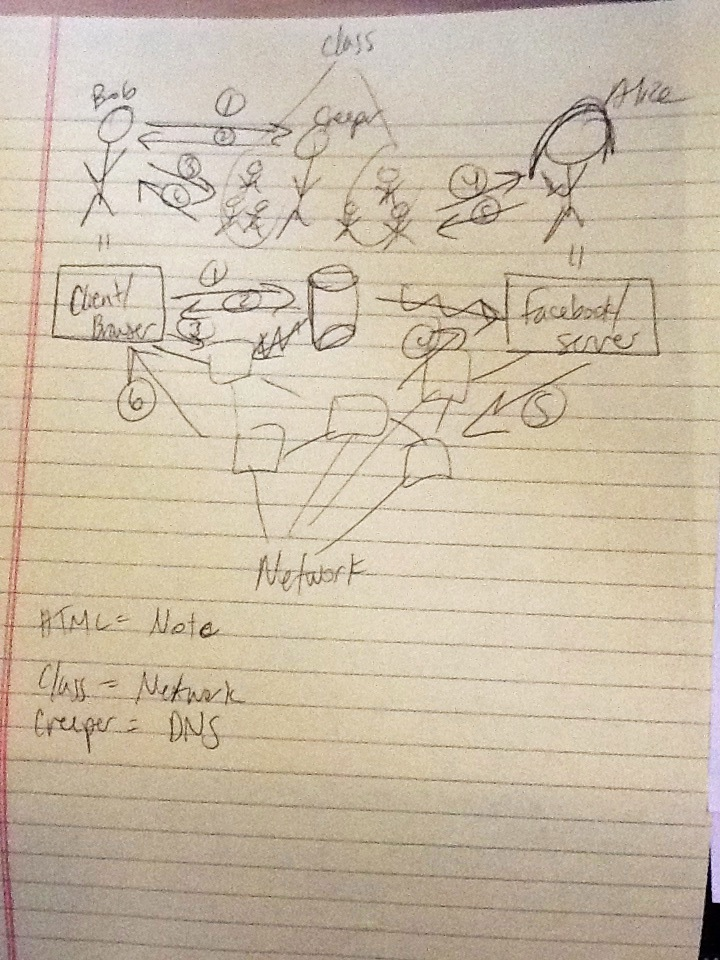 Class
Bob
①
Creeper
Alice
②
③
④
④
⑤
①
②
Client/
Browser
③
Facebook/
Server
④
⑥
⑤
Network
HTML = Note
Class = Network
Creeper = DNS